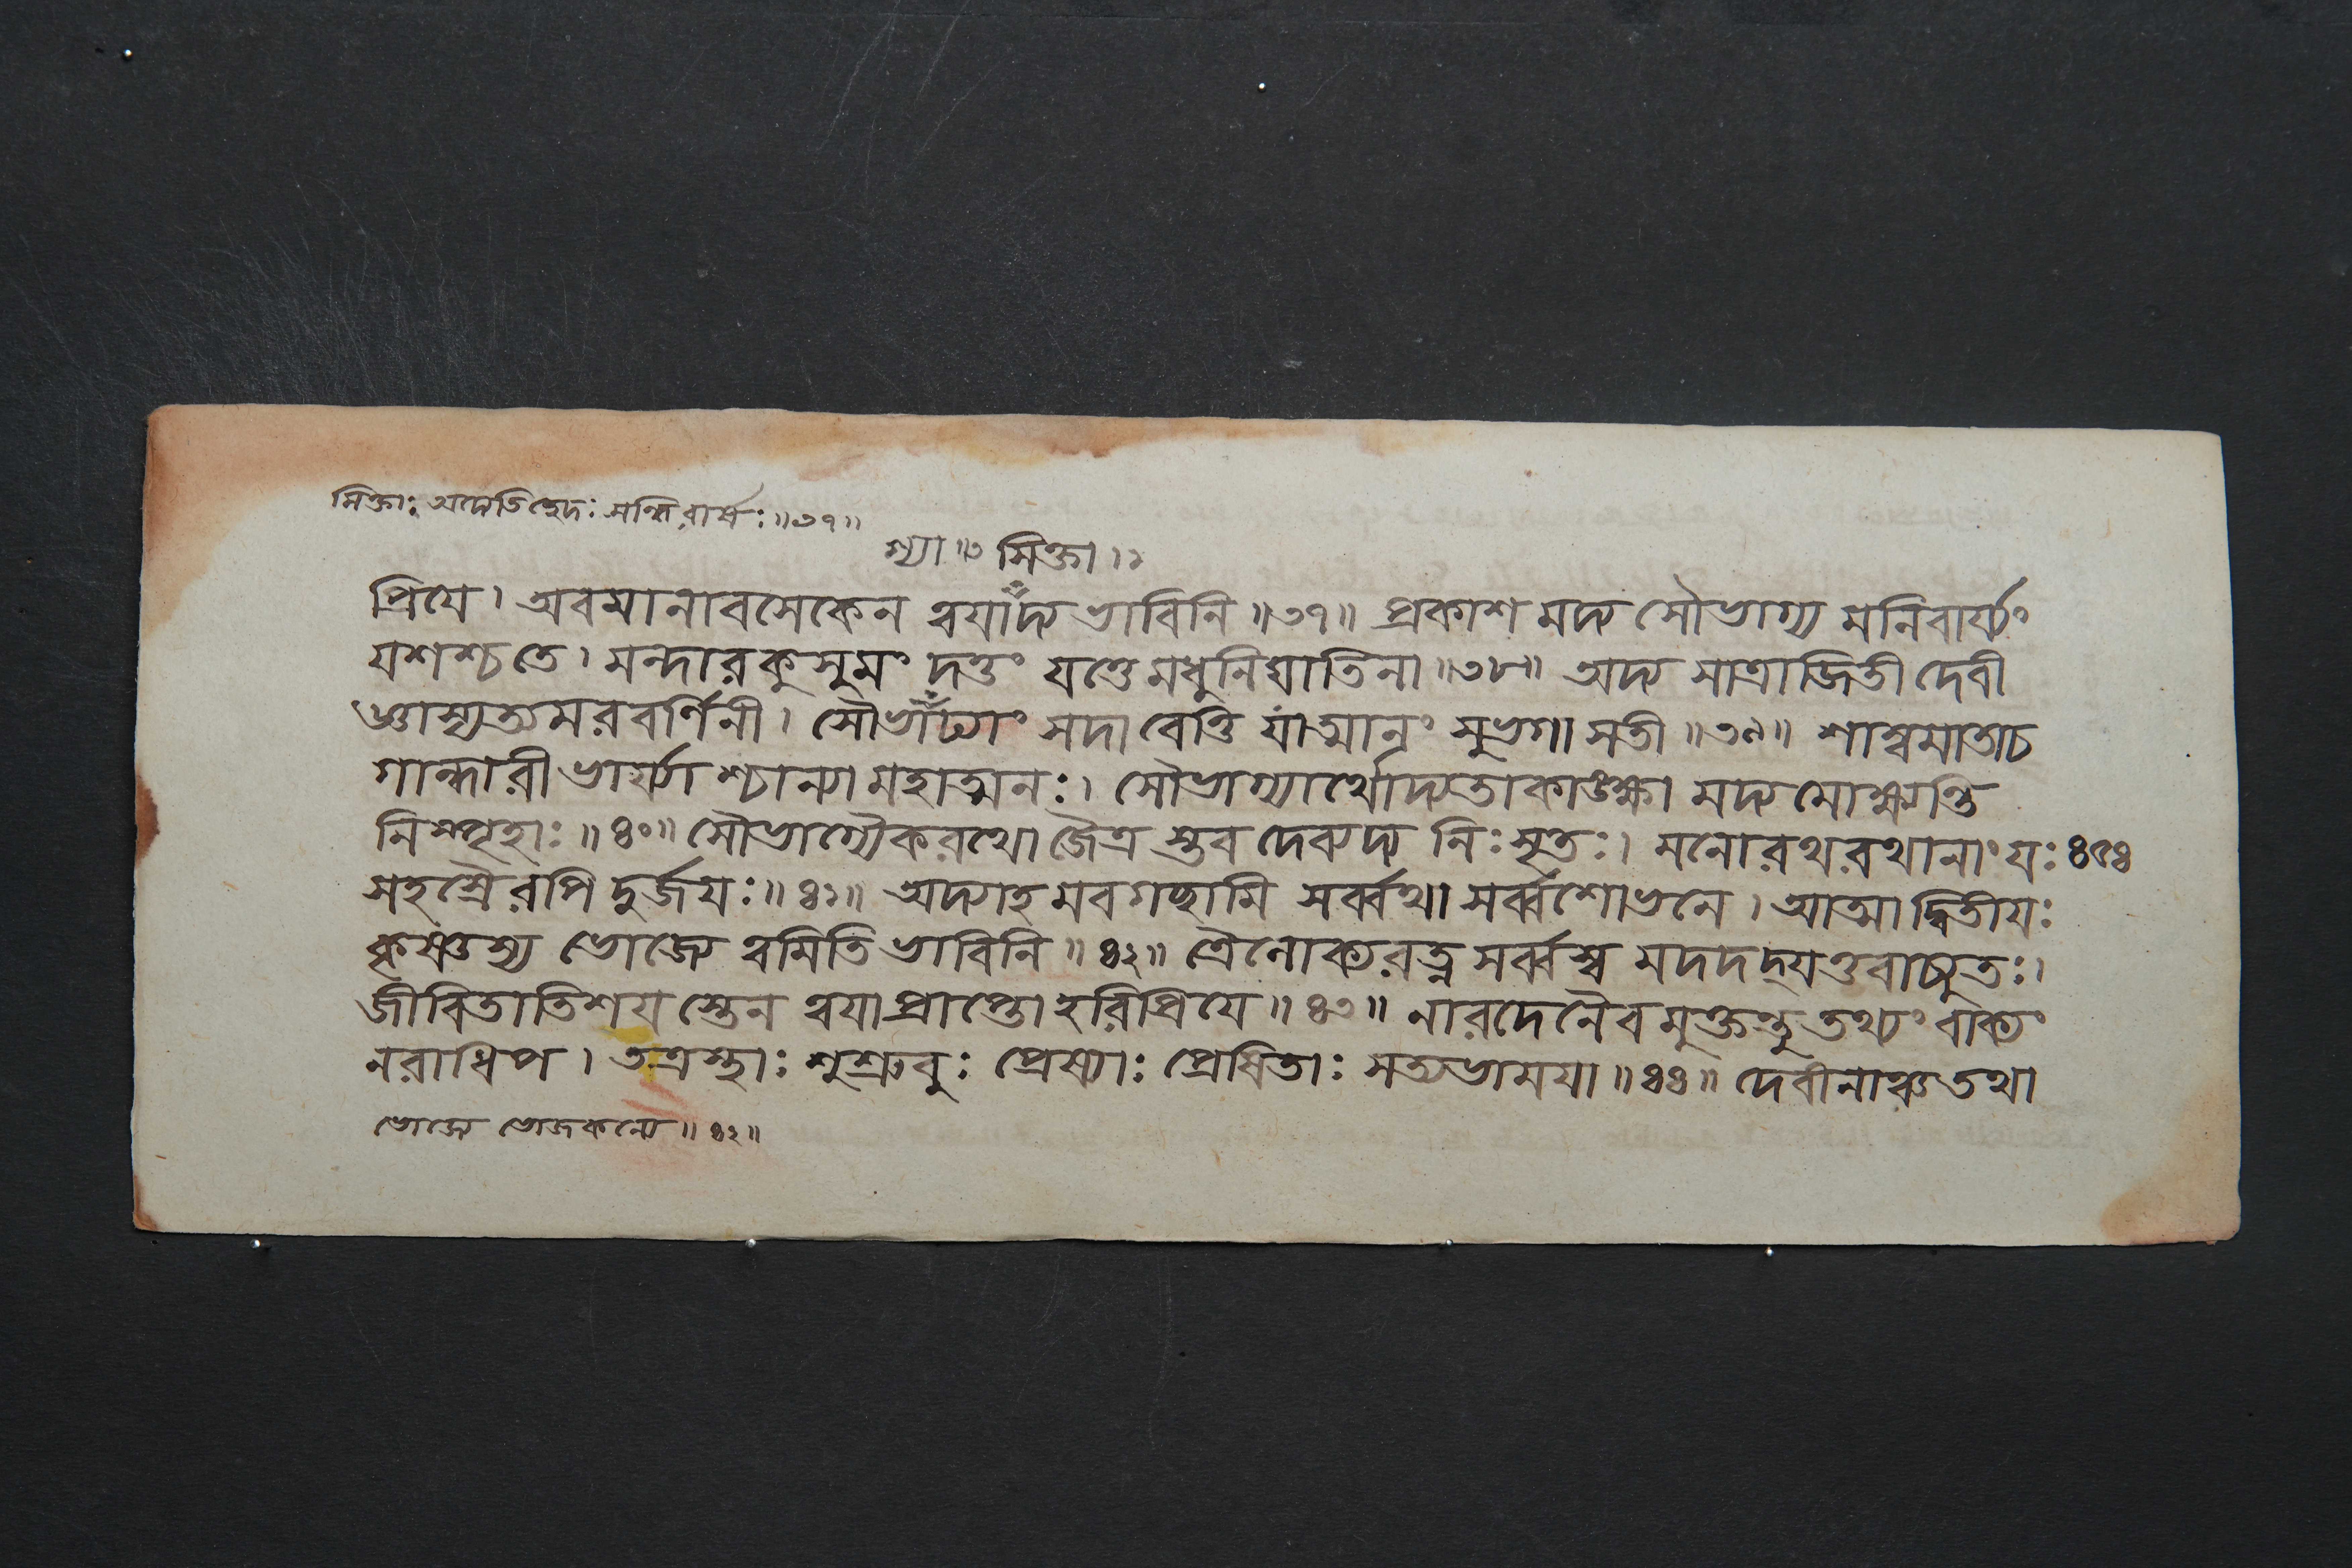 সিক্তাঃ অদ্যেতিছেদঃ সন্ধিরার্ষঃ॥৩৭॥
শ্যা॥৩ সিক্তা।১
প্রিযে। অবমানাবসেকেন ত্বযাদ্য ভাবিনি॥৩৭॥ প্রকাশ মদ্য সৌভাগ্য মনিবার্য্যং
যশশ্চতে। মন্দারকুসুমং দত্তং যত্তে মধুনিঘাতিনা॥৩৮॥ অদ্য সাত্রাজিতী দেবী
জ্ঞাস্যত্যমরবর্ণিনী। সৌভাঁঢ্যাং সদা বেত্তি যাত্মানং সুভগা সতী॥৩৯॥ শাম্বমাতাচ
গান্ধারী ভার্য্যাশ্চান্যা মহাত্মনঃ। সৌভাগ্যার্থোদ্যতাকাঙ্ক্ষা মদ্য মোক্ষ্যন্তি
নিস্পৃহাঃ॥৪০॥ সৌভাগ্যৈকরথো জৈত্র স্তব দেব্যদ্য নিঃসৃতঃ। মনোরথরথানাং যঃ ৪৫৪
সহস্রৈরপি দুর্জযঃ॥৪১॥ অদ্যাহ মবগচ্ছামি সর্ব্বথা সর্ব্বশোভনে। আত্মা দ্বিতীযঃ
কৃষ্ণস্য ভোজ্যে ত্বমিতি ভাবিনি॥৪২॥ ত্রৈলোক্যরত্ন সর্ব্বস্ব মদদদ্যত্তবাচ্যুতঃ।
জীবিতাতিশয স্তেন ত্বযা প্রাপ্তো হরিপ্রিযে॥৪৩॥ নারদেনৈবমুক্তন্তু তথ্যং বাক্যং
নরাধিপ। তত্রস্থাঃ শুশ্রুবুঃ প্রেষ্যাঃ প্রেষিতাঃ সত্যভামযা॥৪৪॥ দেবীনাঞ্চ তথা
ভোজ্যে ভোজকন্যে॥৪২॥